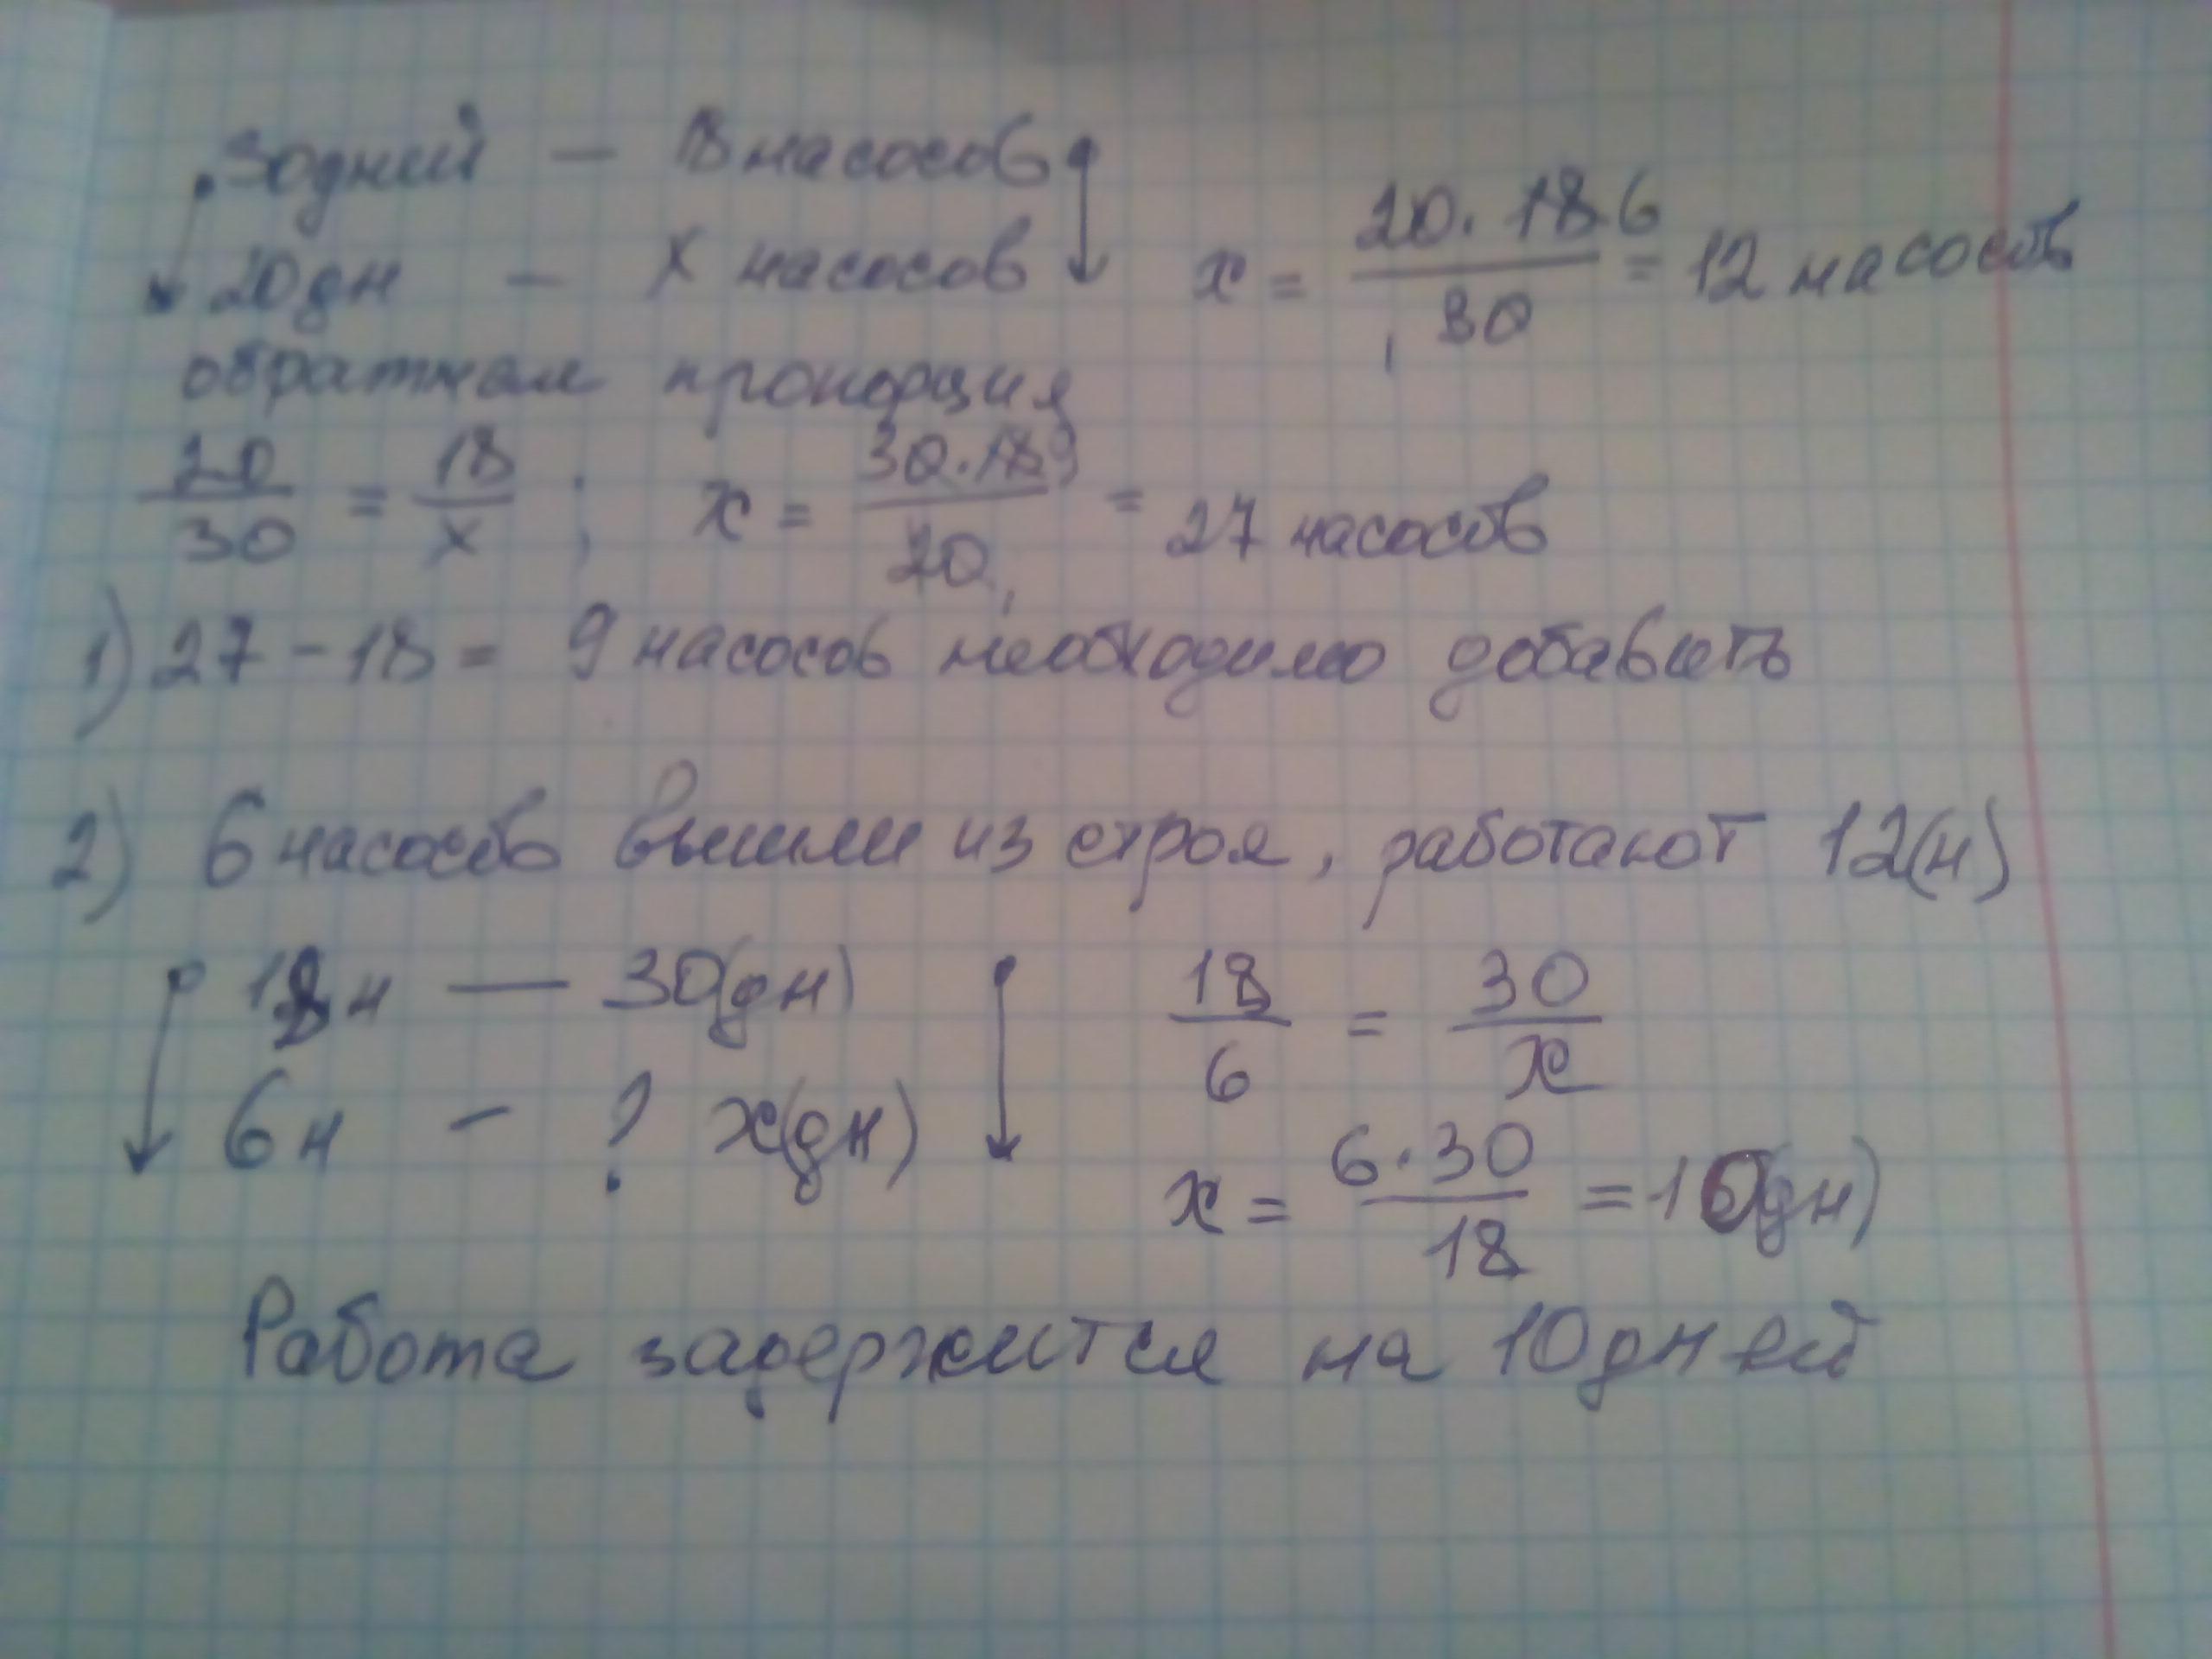 30дний — 18 насосов
20дн — х насосов
x = 20·18 6 / 30 = 12 насосов
обратная пропорция
20/30 = 18/x ; x = 30·18 9 / 20 = 27 насосов
1) 27-18 = 9 насосов необходимо добавить
2) 6 насосов вышли из строя, работают 12(н)
18н — 30(дн)
6н - ? х(дн)
18/6 = 30/x
x = 6·30/18 = 10(дн)
Работа задержится на 10 дней